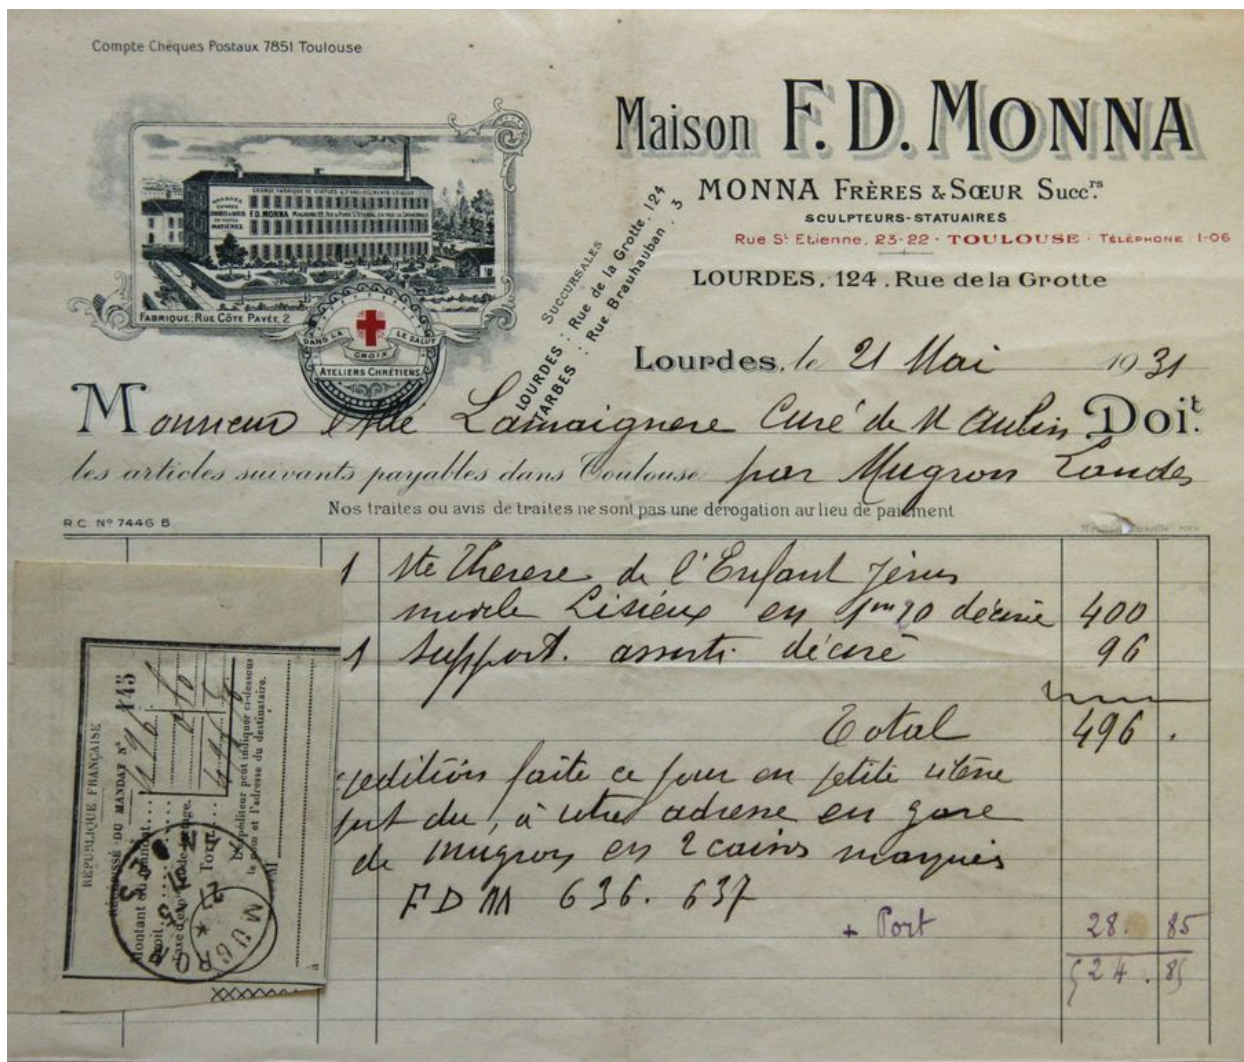 Compte Chèques Postaux 7851 Toulouse
Maison F. D. MONNA
MONNA FRÈRES & SŒUR Succ.rs
SCULPTEURS-STATUAIRES
Rue St Etienne, 23-22 - TOULOUSE - TÉLÉPHONE : 1-06
LOURDES, 124, Rue de la Grotte
GRANDE FABRIQUE DE STATUES
F. D. MONNA
FABRIQUE: RUE CÔTE PAVÉE, 2
DANS LA CROIX LE SALUT
ATELIERS CHRÉTIENS
SUCCURSALES
LOURDES : Rue de la Grotte, 124
TARBES : Rue Brauhauban, 3
Lourdes, le 21 Mai 1931
Monsieur l'Abé Lamaignere Curé de St Aubin Doit
les articles suivants payables dans Toulouse par Mugron Landes
Nos traites ou avis de traites ne sont pas une dérogation au lieu de paiement
R.C. Nº 7446 B.
1 Ste Therese de l'Enfant Jésus
modele Lisieux en 1m20 décorée 400
1 support. assorti décoré 96
Total 496 .
pedition faite ce jour en petite vitesse
port du, à votre adresse en gare
de Mugron en 2 caisses marqués
F D M 636. 637
+ Port 28. 85
524. 85
RÉPUBLIQUE FRANÇAISE
DU MANDAT Nº 145
Montant du mandat
Droit
Total
L'expéditeur peut indiquer ci-dessous
le nom et l'adresse du destinataire.
M
à
MUGRON